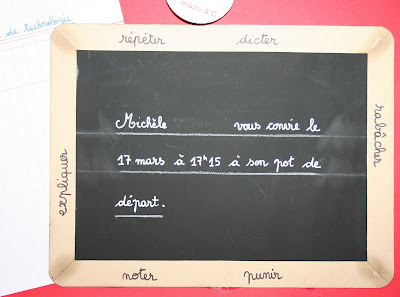 de technologie
répéter dicter
Michèle vous convie le
17 mars à 17h15 à son pot de
départ.
expliquer
rabâcher
noter punir